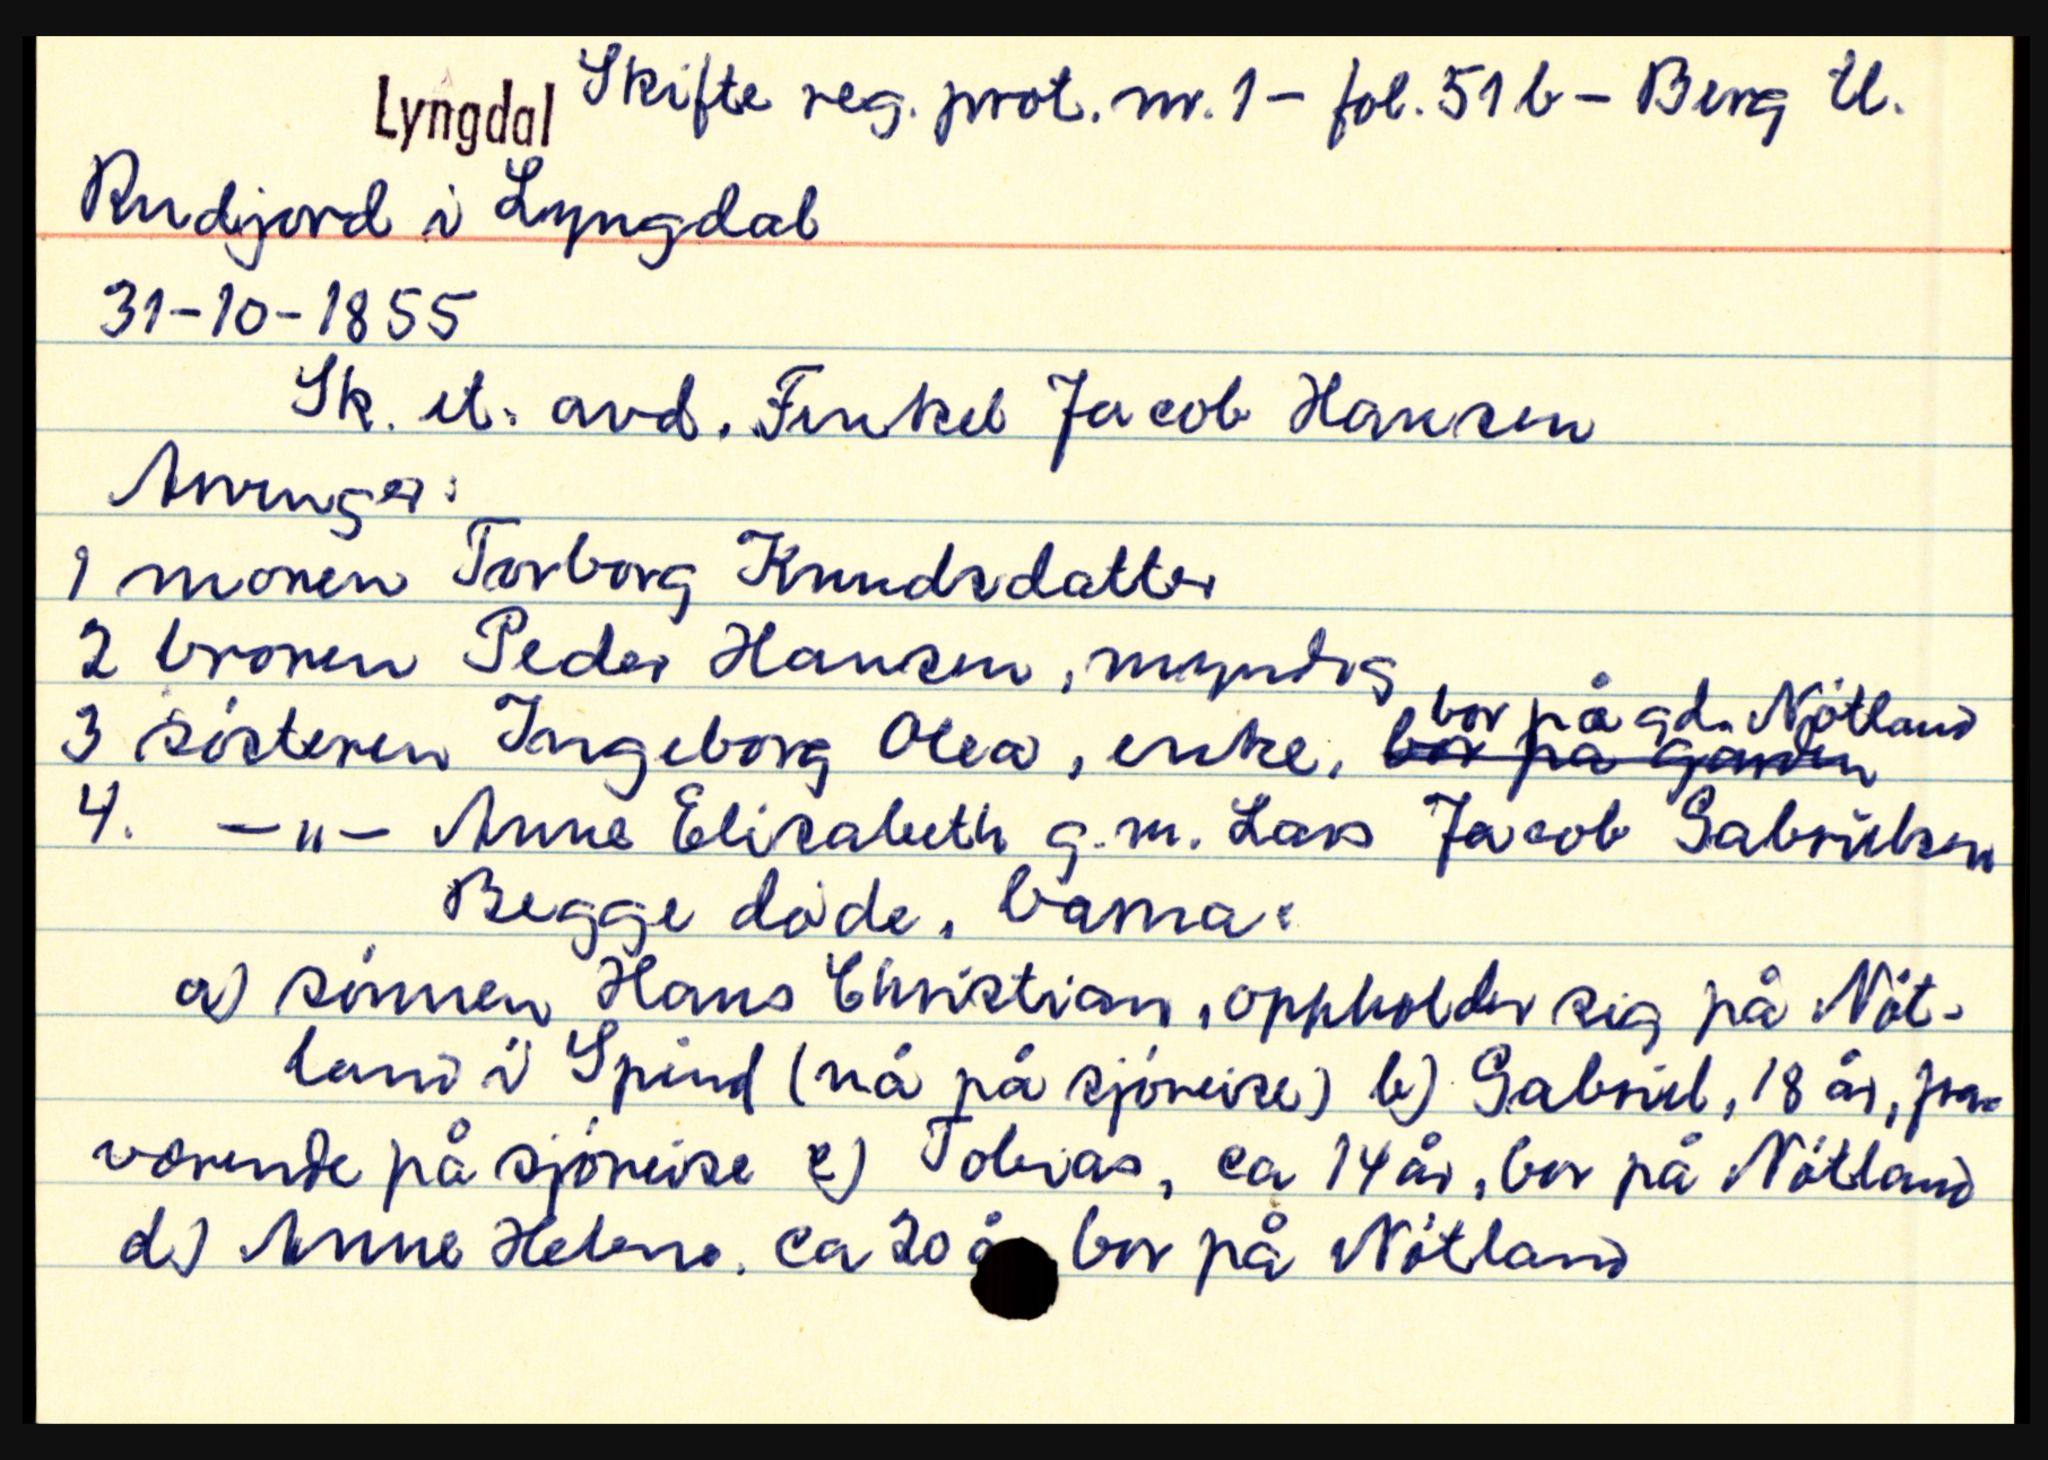 Lyngdal Skifte reg. prot. nr. 1 - fol. 51 b - Berg
Rudjord i Lyngdal
31-10-1855
Sk. et. avd. Tenkel Jacob Hansen
Arvinger:
1 moren Torborg Knudsdatter
2 broren Peder Hansen, myndig
bor på gd. Nötland
3 sösteren Ingeborg Olea, enke, bor på garden
4. -"- Anne Elisabeth g.m. Lars Jacob Gabrielsen
Begge döde, barna:
a) sönnen Hans Christian, oppholder sig på Nöt-
land i Spind (nå på sjöreise) b) Gabriel, 18 år, fra-
værende på sjöreise c) Tobias, ca 14 år, bor på Nötland
d) Anne Helene. ca 20 å bor på Nötland